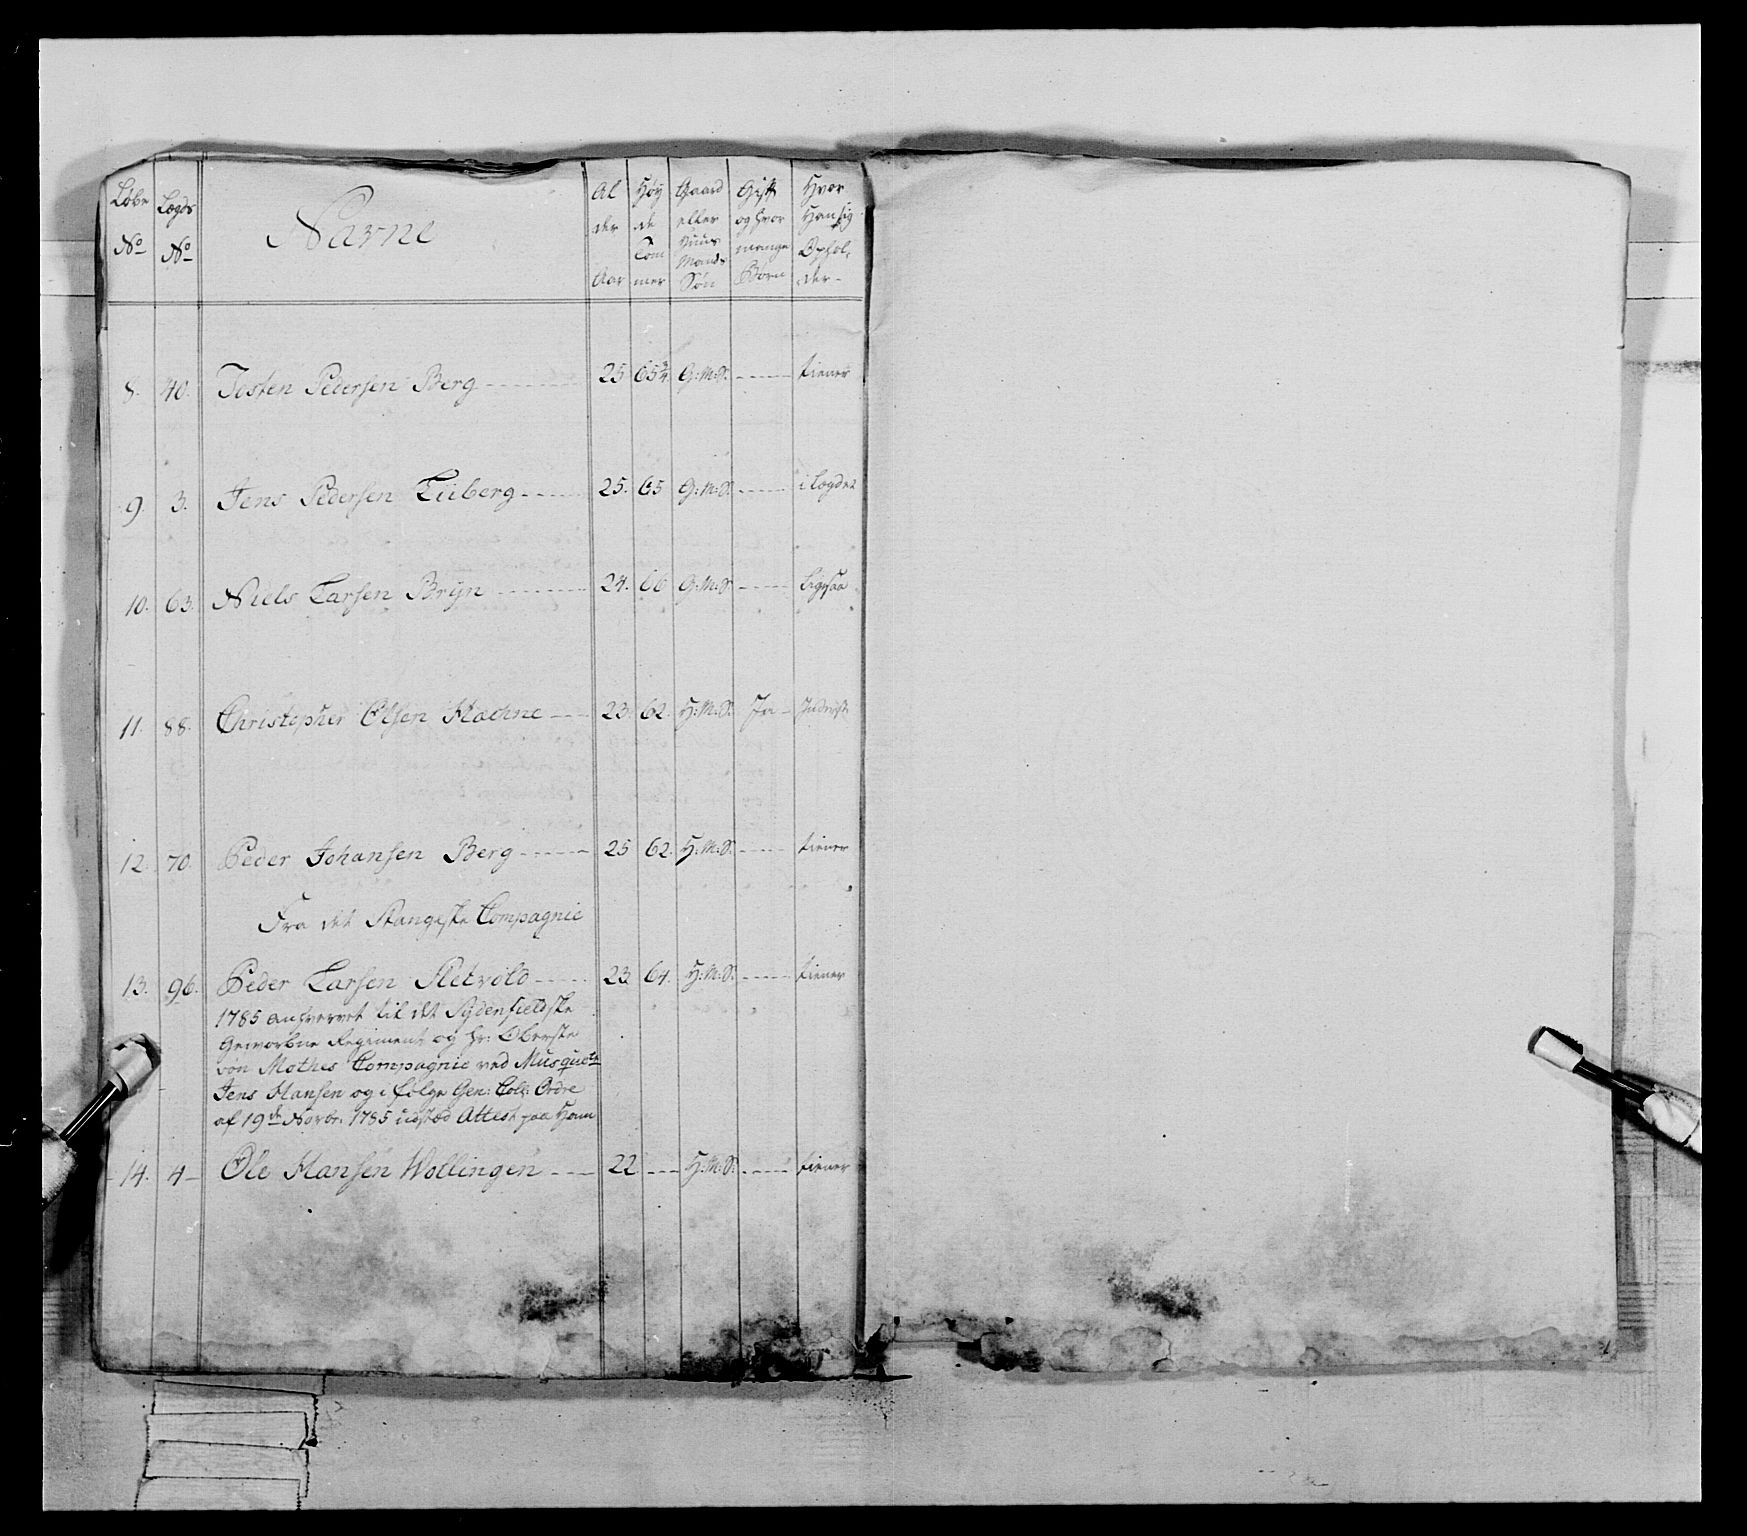 Løbe No Lægds No Navne Al der Aar Høy de Tom mer Gaard eller Huus Mands Søn Gift og hvor mange Børn Hvor Han sig Ophol, der
8. 40. Tosten Pedersen Berg 25 65¼ G:M:S. tiener
9. 3. Jens Pedersen Liiberg 25. 65 G:M:S. i Lægdet
10. 63. Niels Larsen Bryn 24. 66 G:M:S. Ligesaa
11. 88. Christopher Olsen Hachne 23. 62. H:M:S. Ja Inderst
12. 70. Peder Johansen Berg 25 62. H:M:S. tiener
Fra det Stangeske Compagnie
13. 96. Peder Larsen Sletvold 23 64. H:M:S. tiener
1785 anhvervet til det Sydenfieldske
Gevorbne Regiment og Hr: Oberste
von Mothes Compagnie ved Musquetr
Jens Hansen og i følge Gen: Coll: Ordre
af 19de Novbr: 1785 udstæd Attest paa Ham
14. 4 Ole Hansen Wollingen 22 H:M:S. tiener